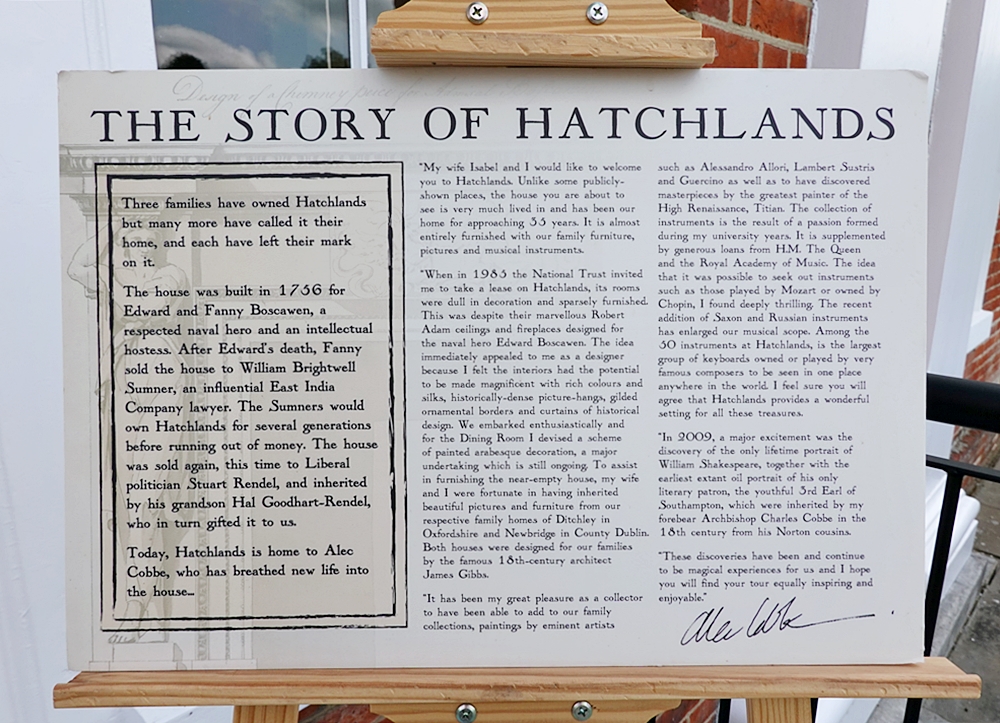 Design of a Chimney piece for Admiral
THE STORY OF HATCHLANDS
Three families have owned Hatchlands
but many more have called it their
home, and each have left their mark
on it.
The house was built in 1756 for
Edward and Fanny Boscawen, a
respected naval hero and an intellectual
hostess. After Edward's death, Fanny
sold the house to William Brightwell
Sumner, an influential East India
Company lawyer. The Sumners would
own Hatchlands for several generations
before running out of money. The house
was sold again, this time to Liberal
politician Stuart Rendel, and inherited
by his grandson Hal Goodhart-Rendel,
who in turn gifted it to us.
Today, Hatchlands is home to Alec
Cobbe, who has breathed new life into
the house...
"My wife Isabel and I would like to welcome
you to Hatchlands. Unlike some publicly-
shown places, the house you are about to
see is very much lived in and has been our
home for approaching 35 years. It is almost
entirely furnished with our family furniture,
pictures and musical instruments.
"When in 1985 the National Trust invited
me to take a lease on Hatchlands, its rooms
were dull in decoration and sparsely furnished.
This was despite their marvellous Robert
Adam ceilings and fireplaces designed for
the naval hero Edward Boscawen. The idea
immediately appealed to me as a designer
because I felt the interiors had the potential
to be made magnificent with rich colours and
silks, historically-dense picture-hangs, gilded
ornamental borders and curtains of historical
design. We embarked enthusiastically and
for the Dining Room I devised a scheme
of painted arabesque decoration, a major
undertaking which is still ongoing. To assist
in furnishing the near-empty house, my wife
and I were fortunate in having inherited
beautiful pictures and furniture from our
respective family homes of Ditchley in
Oxfordshire and Newbridge in County Dublin.
Both houses were designed for our families
by the famous 18th-century architect
James Gibbs.
"It has been my great pleasure as a collector
to have been able to add to our family
collections, paintings by eminent artists
such as Alessandro Allori, Lambert Sustris
and Guercino as well as to have discovered
masterpieces by the greatest painter of the
High Renaissance, Titian. The collection of
instruments is the result of a passion formed
during my university years. It is supplemented
by generous loans from H.M. The Queen
and the Royal Academy of Music. The idea
that it was possible to seek out instruments
such as those played by Mozart or owned by
Chopin, I found deeply thrilling. The recent
addition of Saxon and Russian instruments
has enlarged our musical scope. Among the
50 instruments at Hatchlands, is the largest
group of keyboards owned or played by very
famous composers to be seen in one place
anywhere in the world. I feel sure you will
agree that Hatchlands provides a wonderful
setting for all these treasures.
"In 2009, a major excitement was the
discovery of the only lifetime portrait of
William Shakespeare, together with the
earliest extant oil portrait of his only
literary patron, the youthful 3rd Earl of
Southampton, which were inherited by my
forebear Archbishop Charles Cobbe in the
18th century from his Norton cousins.
"These discoveries have been and continue
to be magical experiences for us and I hope
you will find your tour equally inspiring and
enjoyable."
Alec Cobbe